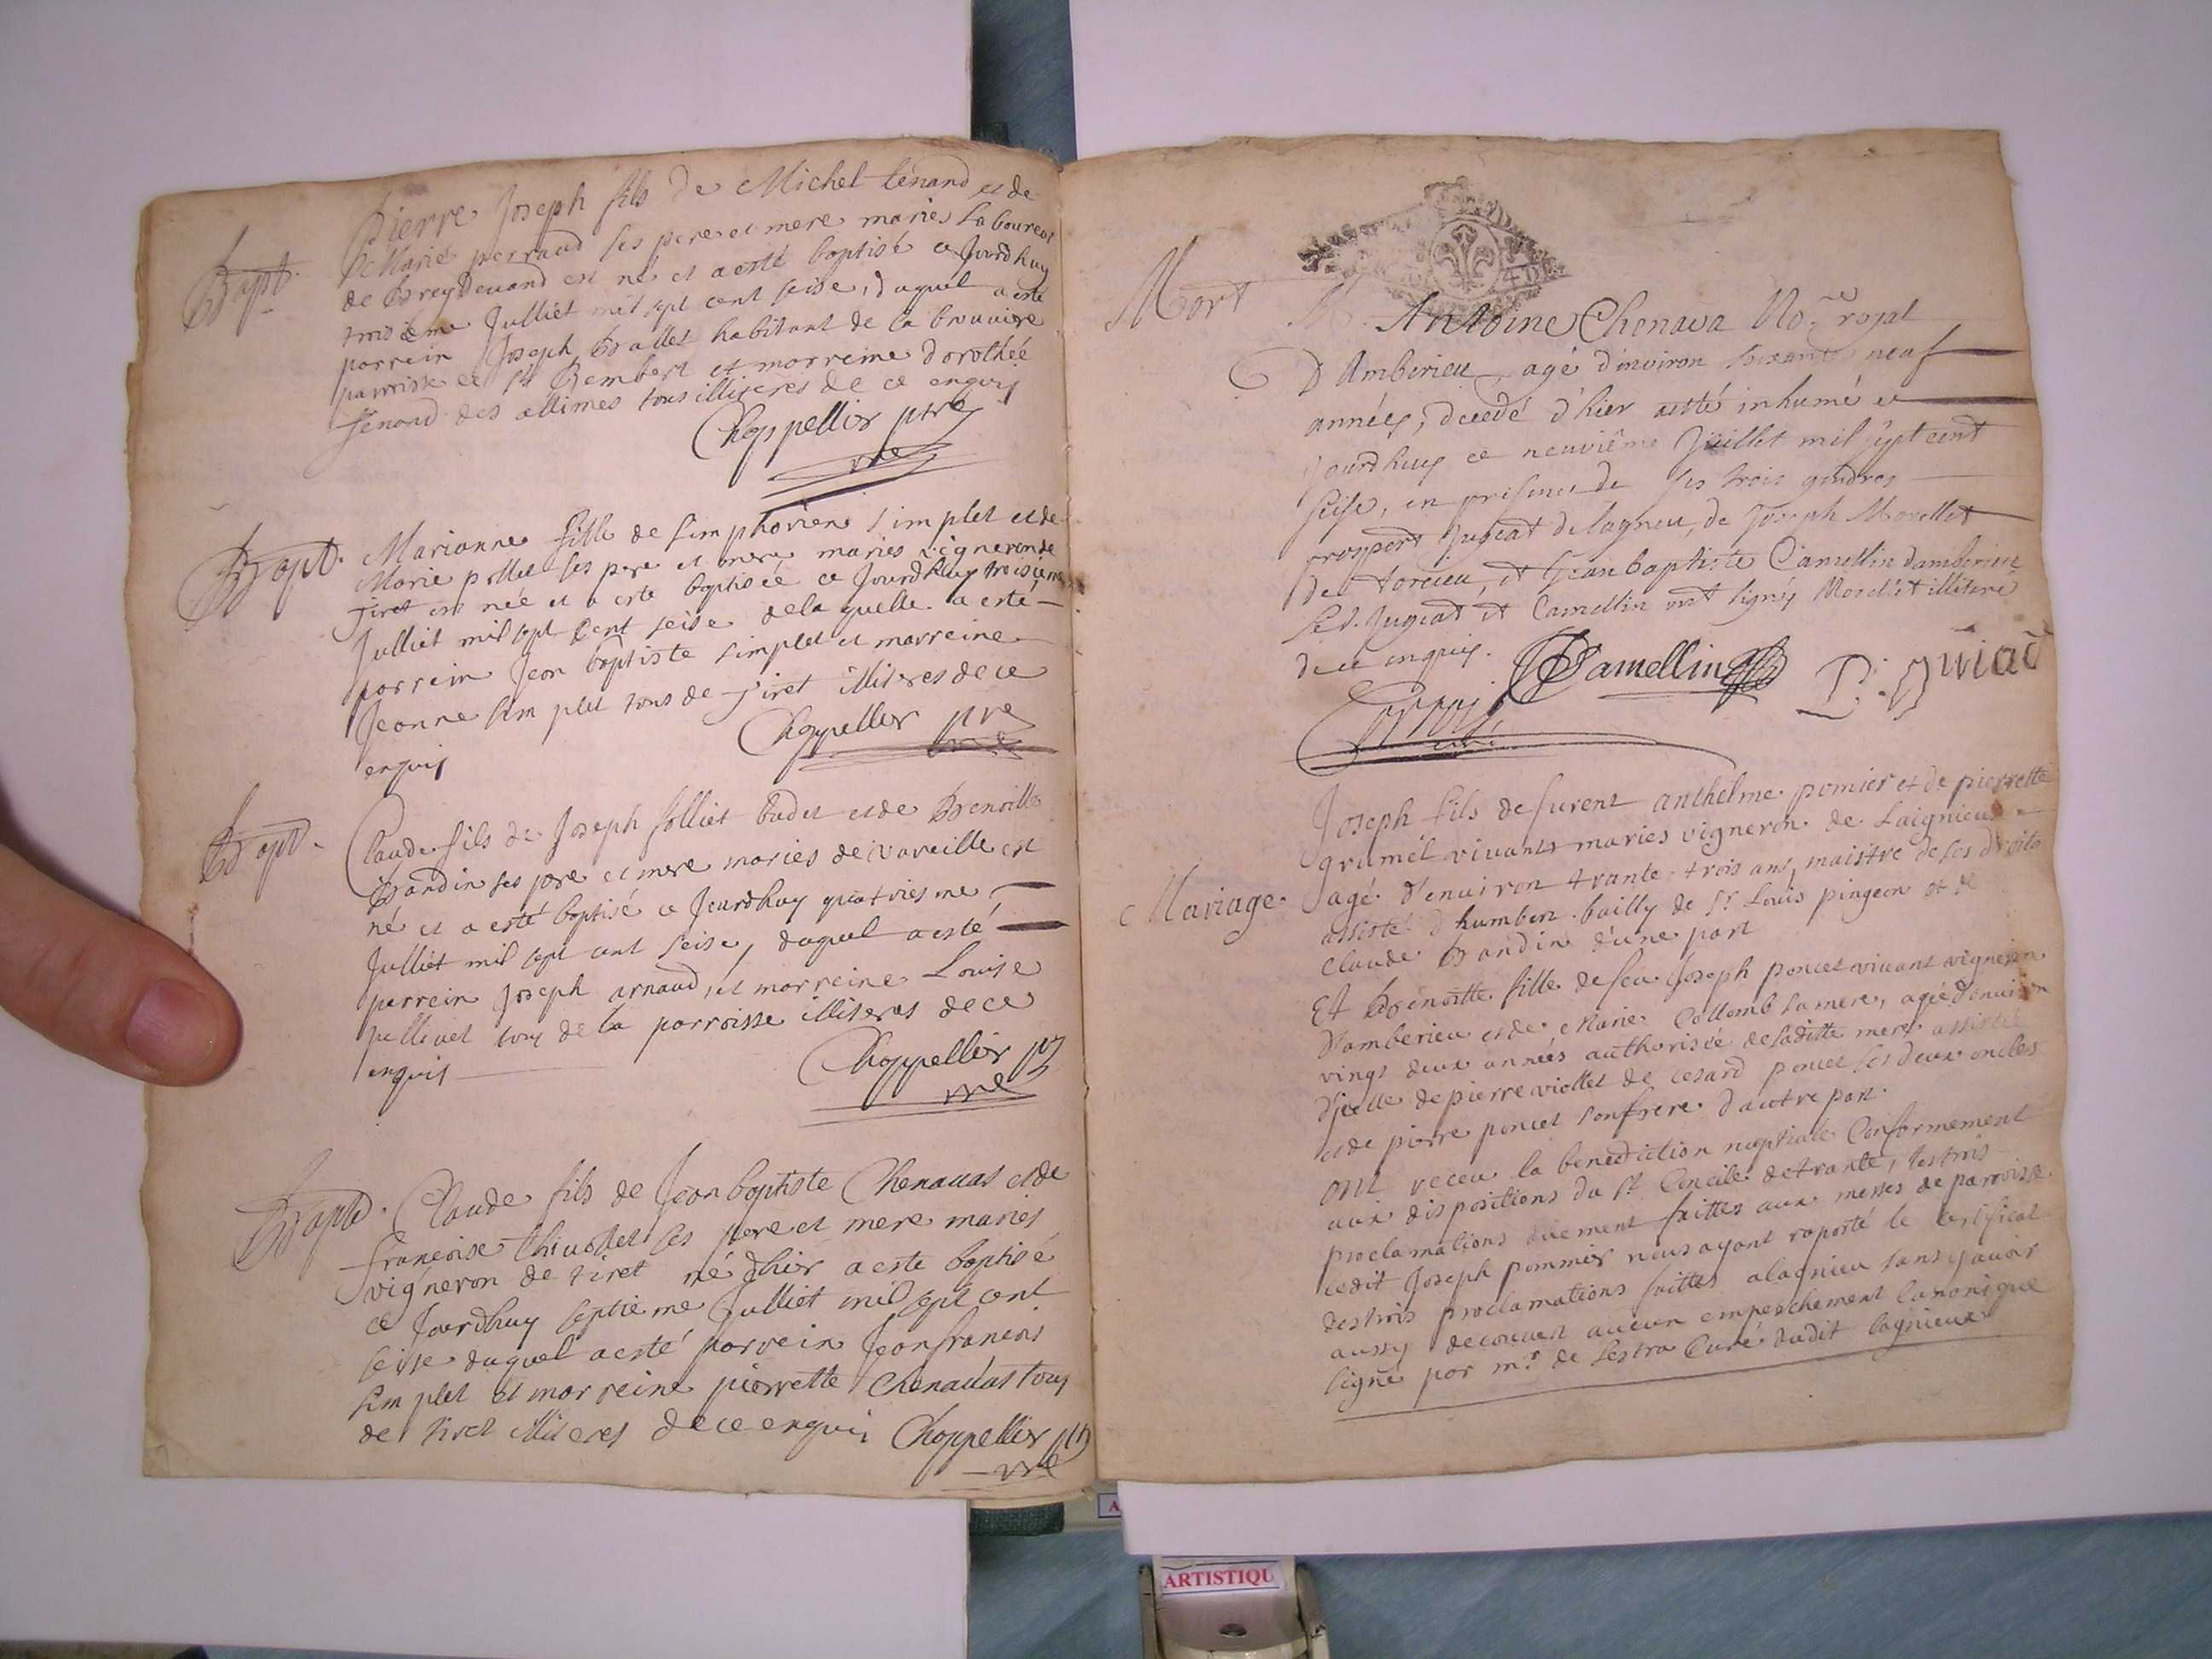 Bapt.
Pierre Joseph fils de Michel tenand et de
Marie perraud ses pere et mere maries laboureur
de Breydevand est né et a esté baptisé ce Jourdhuy
troisieme Julliet mil sept cent seise, duquel a esté
parrein Joseph Ballet habitant de la bruuiere
parroisse de St Rembert et marreine dorothée
tenand des allimes tous illiteres de ce enquis
Chappellier ptre
vre
Bapt.
Marianne fille de Simphorien Simplet et de
Marie pollet ses pere et mere maries vigneron de
Tiret est née et a este baptisée ce Jourdhuy troisieme
Julliet mil sept cent seise de la quelle a esté
parrein Jean baptiste simplet et marreine
Jeanne simplet tous de Tiret illiteres de ce
enquis
Chappellier ptre
vre
Bapt.
Claude fils de Joseph folliet et de Benoitte
Bandin ses pere et mere maries de vareille est
né et a esté baptisé ce Jourdhuy quatriesme
Julliet mil sept cent seise, duquel a esté
parrein Joseph arnaud, et marreine Louise
tous de la parroisse illiteres de ce
enquis
Chappellier
vre
Bapt.
Claude fils de Jean baptiste Chenavas et de
francoise Thivollet ses pere et mere maries
vigneron de tiret né d'hier a este baptisé
ce Jourdhuy septieme Julliet mil sept cent
seise duquel a esté parrein Jean francois
simplet et marreine pierrette Chenavas tous
de tiret illiteres de ce enquis Chappellier
vre
Mort
4 D
M. Antoine Chenava No.re royal
D'Amberieu, agé d'environ soixante neuf
années, decedé d'hier a esté inhumé ce
jourdhuy ce neuviême Juillet mil sept cent
seise, en presence de ses trois gendres
prospert Jugeat de lagneu, de Joseph Morellet
de torcieu, et Jean baptiste Camellin damberieu
Led. Jugeat et Camellin ont signés Morellet illitere
de ce enquis.
Camellin
curé
Mariage.
Joseph fils de furent anthelme pomier et de pierrette
grumel vivants maries vigneron de Laignieu
agé d'environ trante trois ans, maistre de ses droits
assisté d'humbert bailly de Sr Louis pingeon et de
claude Bandin d'une part
Et Benoitte fille de feu Joseph poncet vivant vigneron
d'amberieu et de Marie Collomb sa mere, agée d'environ
vingt deux années authorisée de saditte mere assistée
d'jcelle de pierre viollet de cesard poncet ses deux oncles
et de pierre poncet son frere d'autre part.
ont receu la benediction nuptiale Conformement
aux dispositions du St Concile de trante, les trois
proclamations duement faittes aux messes de parroisse
ledit Joseph pommier nous ayant raporté le certificat
des trois proclamations faittes a lagnieu sans y avoir
aussy decouvert aucun empeschement Canonique
signé par mr. de Lestra Curé dudit lagnieu
A
ARTISTIQU